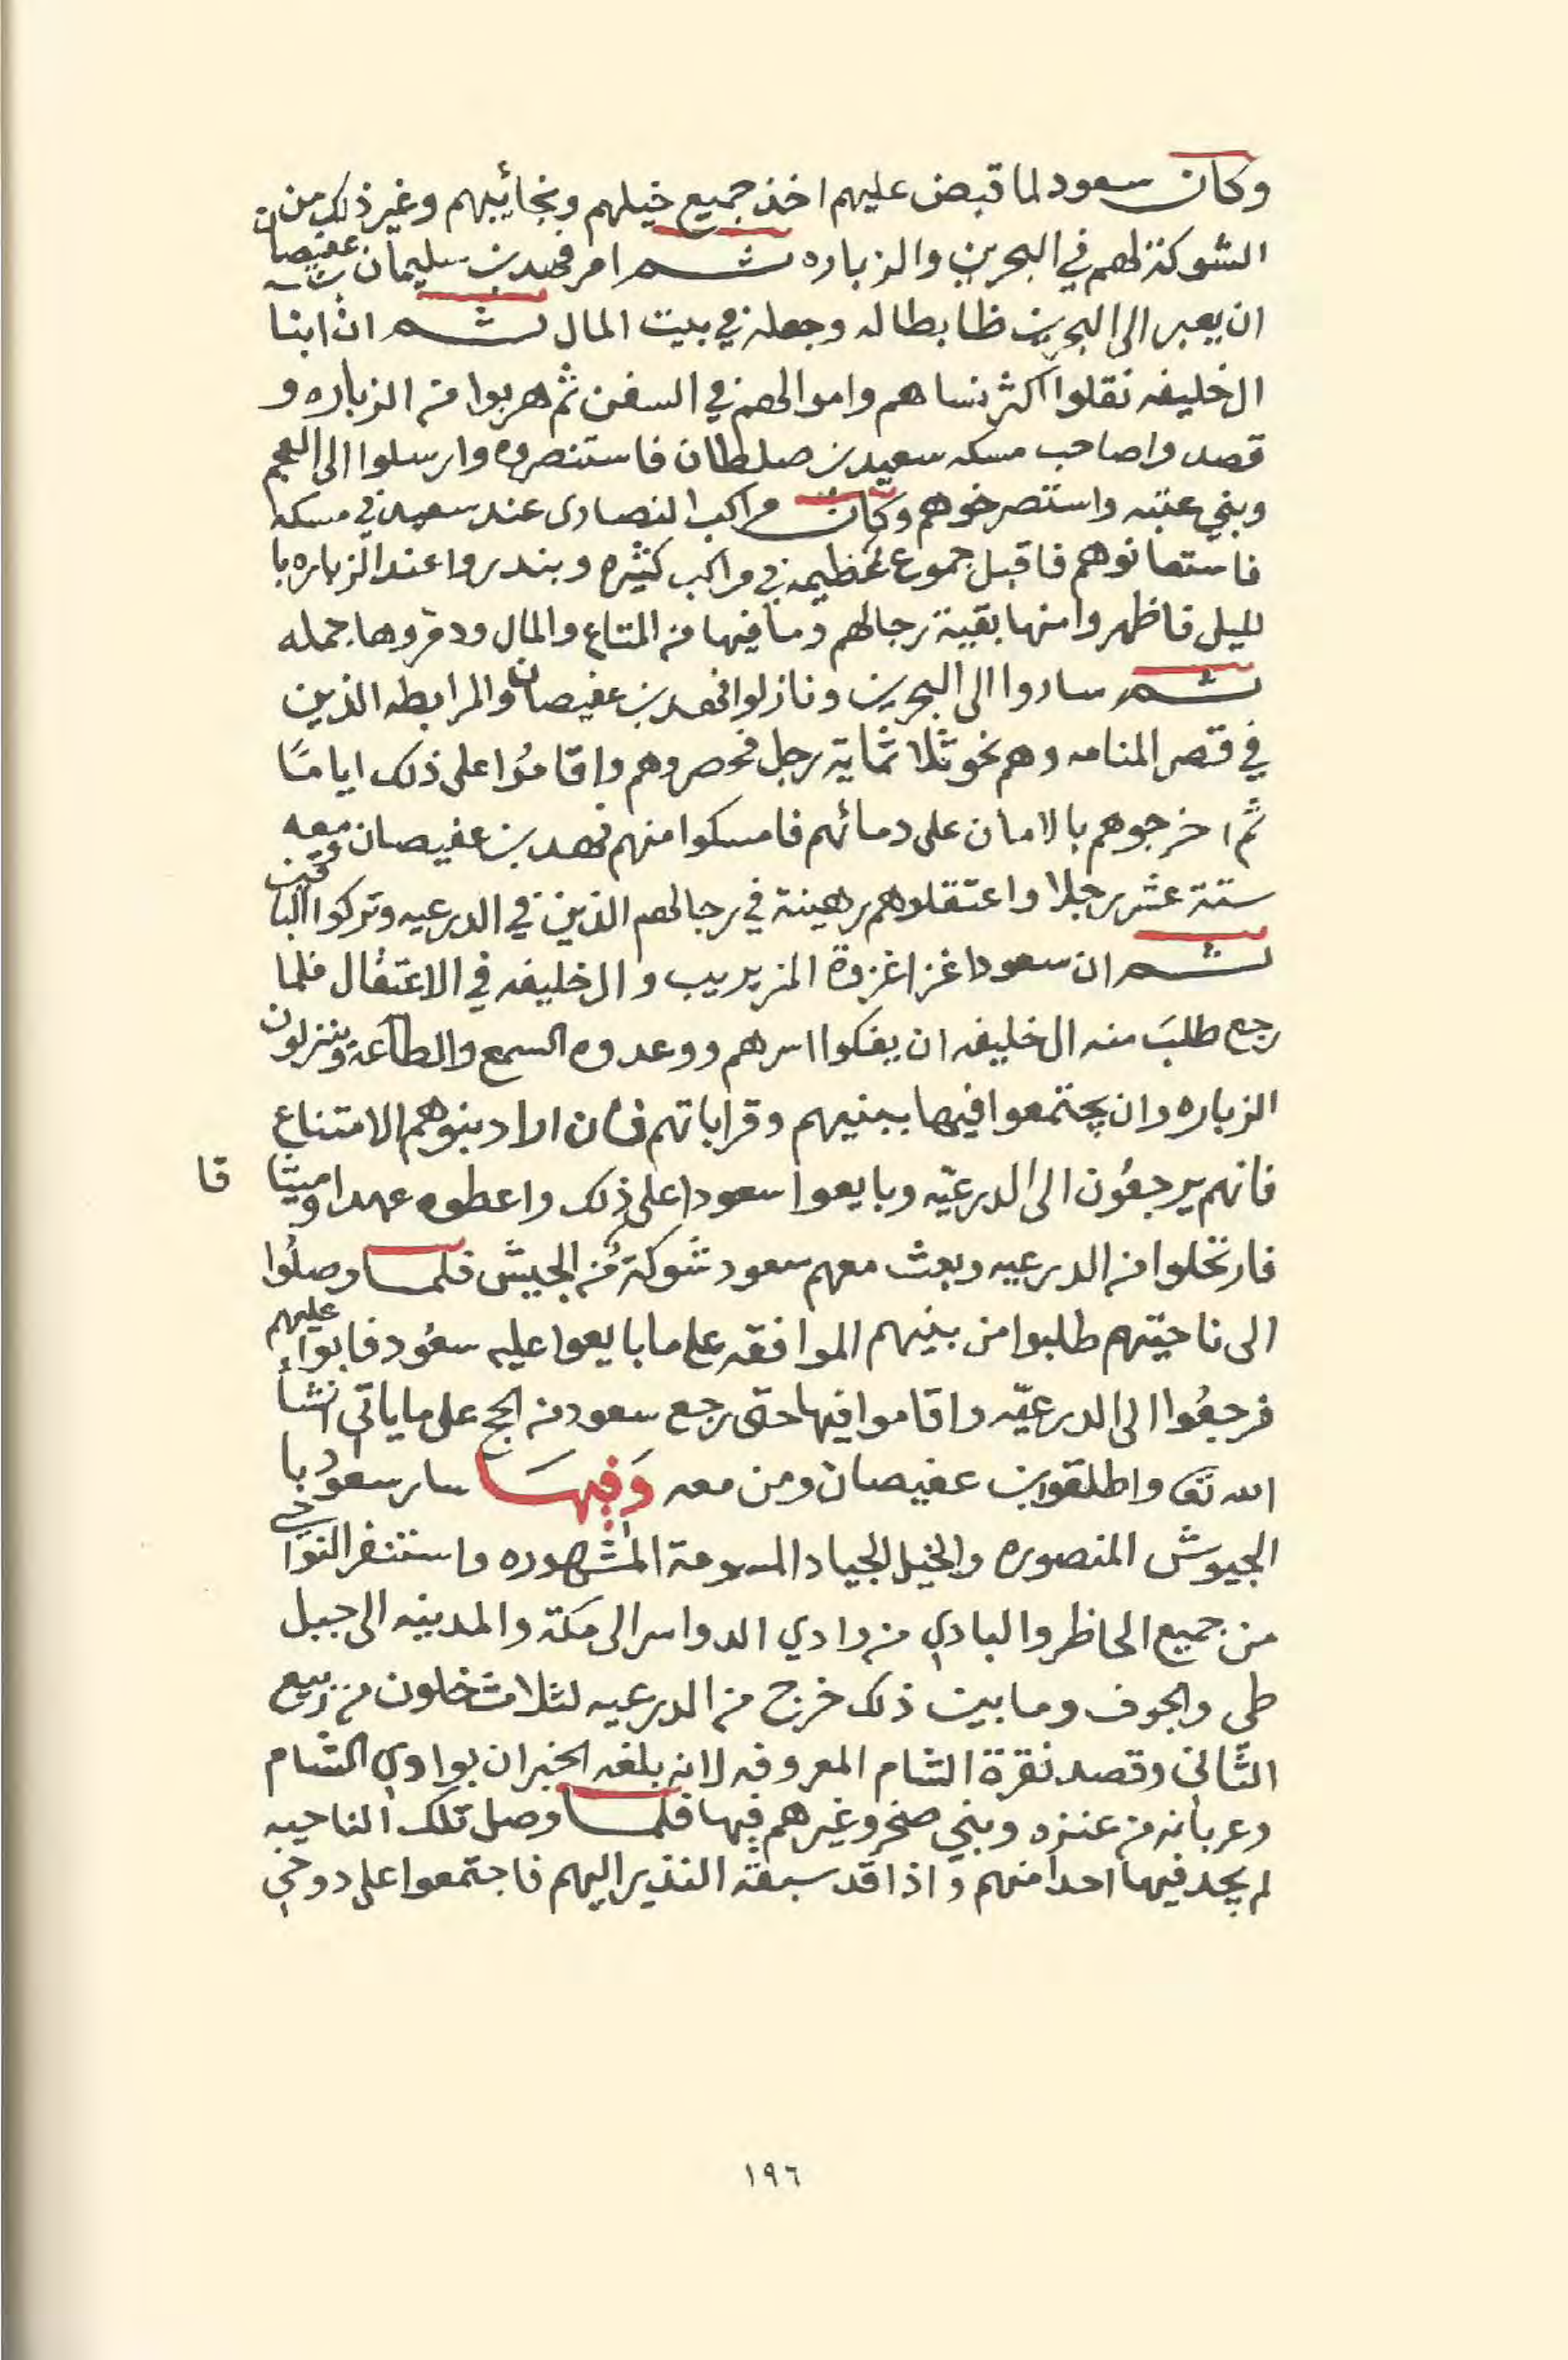 وكان سعود لما قبض عليهم اخذ جميع خيلهم ونجائيبهم وغير ذلك من
الشوكة لهم في البحرين والزباره ثم امر فهد بن سليمان بن عفيصان
ان يعبر الى البحرين ظابطا له وجعله في بيت المال ثم ان ابنا
ال خليفه نقلوا اكثر نساهم واموالهم في السفن ثم هربوا من الزباره و
قصدوا صاحب مسكه سعيد بن صلطان فاستنصروه وارسلوا الى العجم
وبني عتبه واستصرخوهم وكان مراكب النصارى عند سعيد في مسكه
فاستعانوهم فاقبل جموع عظيمه في مراكب كثيره وبندروا عند الزباره با
لليل فاظهروا منها بقية رجالهم وما فيها من المتاع والمال ودمروها جمله
ثم ساروا الى البحرين ونازلوا فهد بن عفيصان والمرابطه الذين
في قصر المنامه وهم نحو ثلاثماية رجل فحصروهم واقاموا على ذلك اياما
ثم اخرجوهم بالامان على دمائهم فامسكوا منهم فهد بن عفيصان ومعه
ستة عشر رجلا واعتقلوهم رهينة في رجالهم الذين في الدرعيه وتركوا الباقين
ثم ان سعودا غزا غزوة المزيريب وال خليفه في الاعتقال فلما
رجع طلب منه ال خليفه ان يفكوا اسرهم ووعدوه السمع والطاعة وينزلون
الزباره وان يجتمعوا فيها ببنيهم وقراباتهم فان اراد بنوهم الامتناع
فانهم يرجعون الى الدرعيّه وبايعوا سعودا على ذلك واعطوه عهدا وميثا قا
فارتحلوا من الدرعيه وبعث معهم سعود شوكة من الجيش فلما وصلوا
الى ناحيتهم طلبوا من بنيهم الموافقه على ما بايعوا عليه سعود فابوا عليهم
فرجعوا الى الدرعيّه واقاموا فيها حتى رجع سعود من الحج على ما ياتي انشأ
الله تع واطلقوا بن عفيصان ومن معه وَفيهَا سار سعود با
الجيوش المنصوره والخيل الجياد المسومة المشهوره واستنفر النواحي
من جميع الحاظر والبادي من وادي الدواسر الى مكة والمدينه الى جبل
طي والجوف وما بين ذلك خرج من الدرعيه لثلاث خلون من ربيع
الثاني وقصد نقرة الشام المعروفه لانه بلغه الخبر ان بوادي الشام
وعربانه من عنزه وبني صخر وغيرهم فيها فلما وصل تلك الناحيه
لم يجد فيها احدا منهم واذا قد سبقه النذير اليهم فاجتمعوا على دوخي
١٩٦